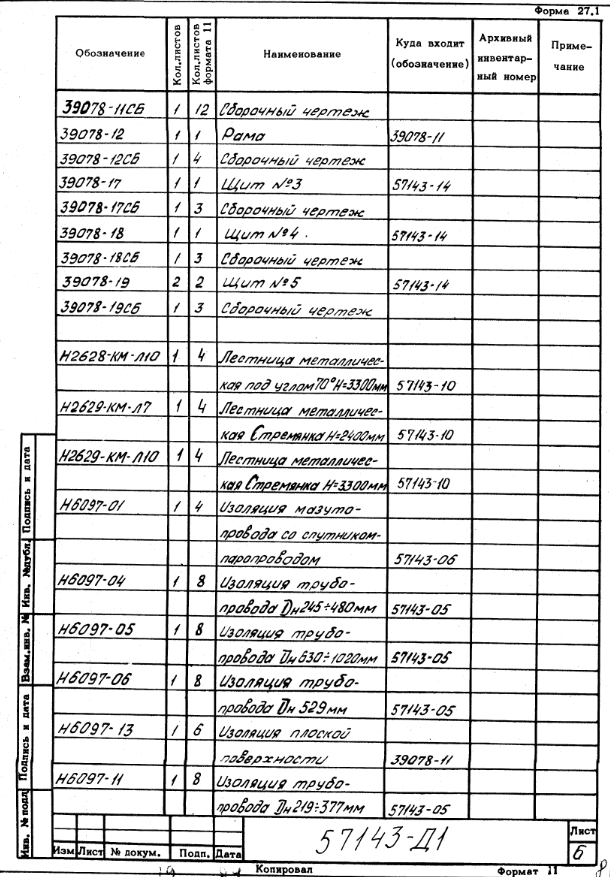 Форма 27.1
Обозначение Кол.листов Кол.листов формата 11 Наименование Куда входит (обозначение) Архивный инвентарный номер Примечание
39078-11СБ 1 12 Сборочный чертеж
39078-12 1 1 Рама 39078-11
39078-12СБ 1 4 Сборочный чертеж
39078-17 1 1 Щит №3 57143-14
39078-17СБ 1 3 Сборочный чертеж
39078-18 1 1 Щит №4. 57143-14
39078-18СБ 1 3 Сборочный чертеж
39078-19 2 2 Щит №5 57143-14
39078-19СБ 1 3 Сборочный чертеж
Н2628-КМ-Л10 1 4 Лестница металличес-
кая под углом 70° Н=3300мм 57143-10
Н2629-КМ-Л7 1 4 Лестница металличес-
кая Стремянка Н=2400мм 57143-10
Н2629-КМ-Л10 1 4 Лестница металличес-
кая Стремянка Н=3300мм 57143-10
Н6097-01 1 4 Изоляция мазуто-
провода со спутником-
паропроводом 57143-06
Н6097-04 1 8 Изоляция трубо-
провода Dн 245÷480мм 57143-05
Н6097-05 1 8 Изоляция трубо-
провода Dн 630÷1020мм 57143-05
Н6097-06 1 8 Изоляция трубо-
провода Dн 529мм 57143-05
Н6097-13 1 6 Изоляция плоской
поверхности 39078-11
Н6097-11 1 8 Изоляция трубо-
провода Dн 219÷377мм 57143-05
Инв. № подл. Подпись и дата Взам.инв. № Инв. №дубл. Подпись и дата
57143-Д1
Лист
6
Изм Лист № докум. Подп. Дата
Копировал Формат 11